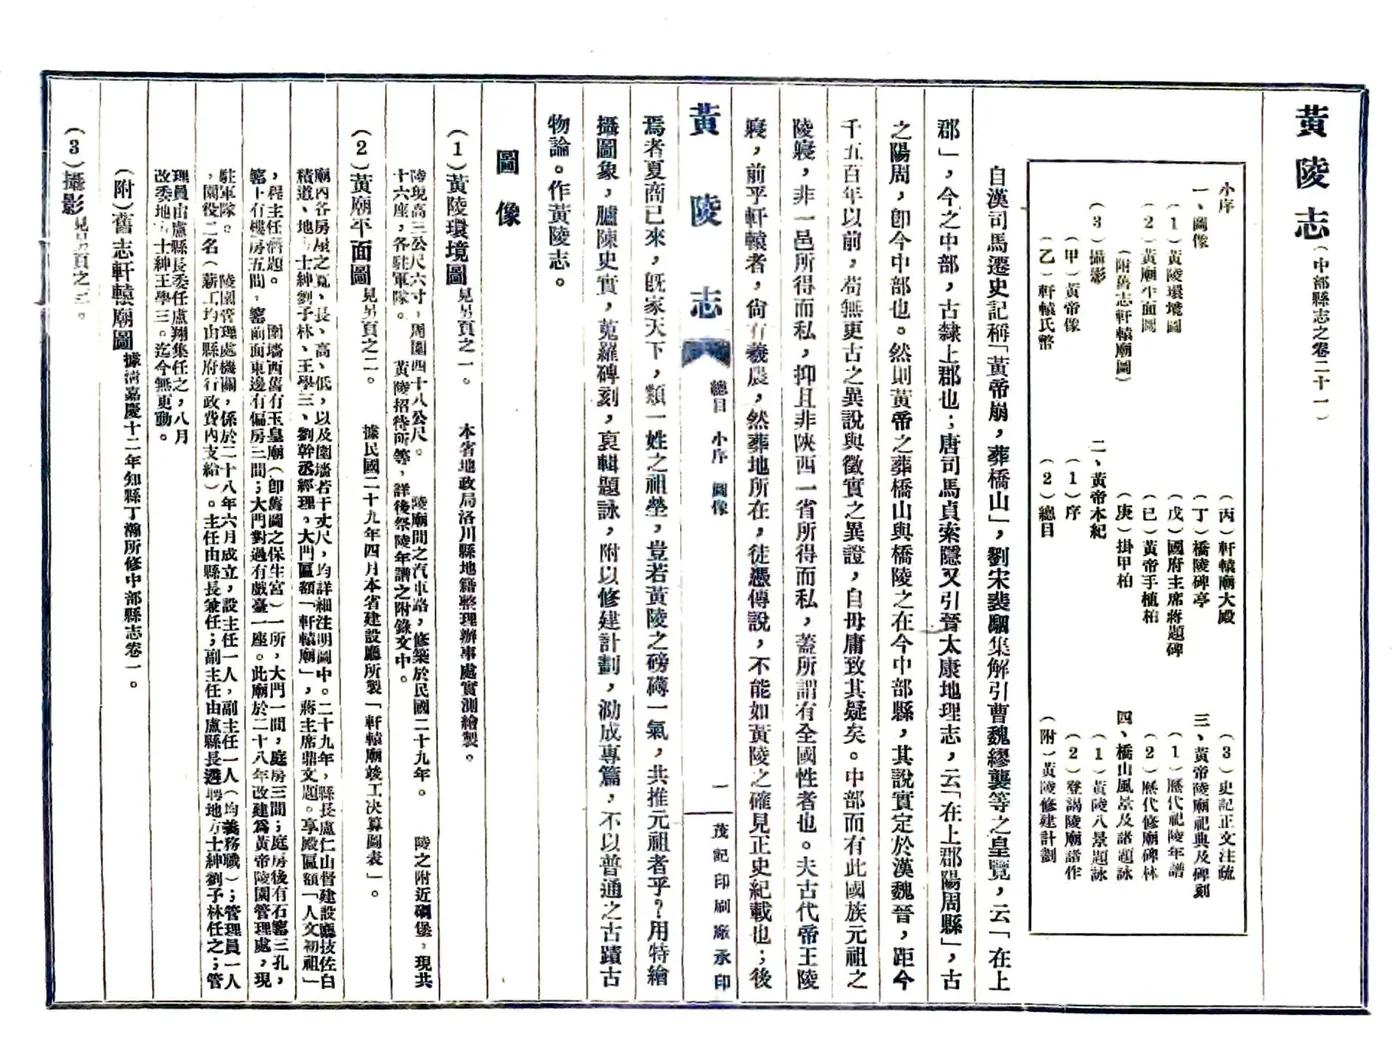 黃陵志(中部縣志之卷二十一)
小序
一、圖像
(1)黃陵環境圖
(2)黃廟平面圖
(附舊志軒轅廟圖)
(3)攝影
(甲)黃帝像
(乙)軒轅氏幣
(丙)軒轅廟大殿
(丁)橋陵碑亭
(戊)國府主席蔣題碑
(己)黃帝手植柏
(庚)掛甲柏
二、黃帝本紀
(1)序
(2)總目
(3)史記正文注疏
三、黃帝陵廟祀典及碑刻
(1)歷代祀陵年譜
(2)歷代修廟碑林
四、橋山風景及諸題詠
(1)黃陵八景題詠
(2)登謁陵廟諸作
(附)黃陵修建計劃
自漢司馬遷史記稱「黃帝崩,葬橋山」,劉宋裴駰集解引曹魏繆襲等之皇覽,云「在上
郡」,今之中部,古隸上郡也;唐司馬貞索隱又引晉太康地理志,云「在上郡陽周縣」,古
之陽周,卽今中部也。然則黃帝之葬橋山與橋陵之在今中部縣,其說實定於漢魏晉,距今
千五百年以前,苟無更古之異說與徵實之異證,自毋庸致其疑矣。中部而有此國族元祖之
陵寢,非一邑所得而私,抑且非陝西一省所得而私,蓋所謂有全國性者也。夫古代帝王陵
寢,前乎軒轅者,尙有羲農,然葬地所在,徒憑傳說,不能如黃陵之確見正史紀載也;後
黃陵志 總目 小序 圖像 一 茂記印刷廠承印
焉者夏商已來,旣家天下,類一姓之祖塋,豈若黃陵之磅礴一氣,共推元祖者乎?用特繪
攝圖象,臚陳史實,蒐羅碑刻,裒輯題詠,附以修建計劃,泐成專篇,不以普通之古蹟古
物論。作黃陵志。
圖像
(1)黃陵環境圖見另頁之一。 本省地政局洛川縣地籍整理辦事處實測繪製。
陵現高三公尺六寸,周圍四十八公尺。 陵廟間之汽車路,修築於民國二十九年。 陵之附近碉堡,現共
十六座,各駐軍隊。 黃陵招待所等,詳後祭陵年譜之附錄文中。
(2)黃廟平面圖見另頁之二。 據民國二十九年四月本省建設廳所製「軒轅廟竣工決算圖表」。
廟內各房屋之寬、長、高、低,以及圍墻若干丈尺,均詳細注明圖中。二十九年,縣長盧仁山督建設廳技佐白
積道、地方士紳劉子林、王學三、劉幹丞經理。大門匾額「軒轅廟」,蔣主席鼎文題。享殿匾額「人文初祖」
,程主任潛題。 圍墻西舊有玉皇廟(卽舊圖之保生宮)一所,大門一間,庭房三間;庭房後有石窰三孔,
窰上有樓房五間,窰前面東邊有偏房三間;大門對過有戲臺一座。此廟於二十八年改建爲黃帝陵園管理處,現
駐軍隊。 陵園管理處機關,係於二十八年六月成立,設主任一人,副主任一人(均義務職);管理員一人
,園役二名(薪工均由縣府行政費內支給)。主任由縣長兼任;副主任由盧縣長遴聘地方士紳劉子林任之;管
理員由盧縣長委任盧翔集任之,八月
改委地方士紳王學三。迄今無更動。
(附)舊志軒轅廟圖據淸嘉慶十二年知縣丁瀚所修中部縣志卷一。
(3)攝影見另頁之三。